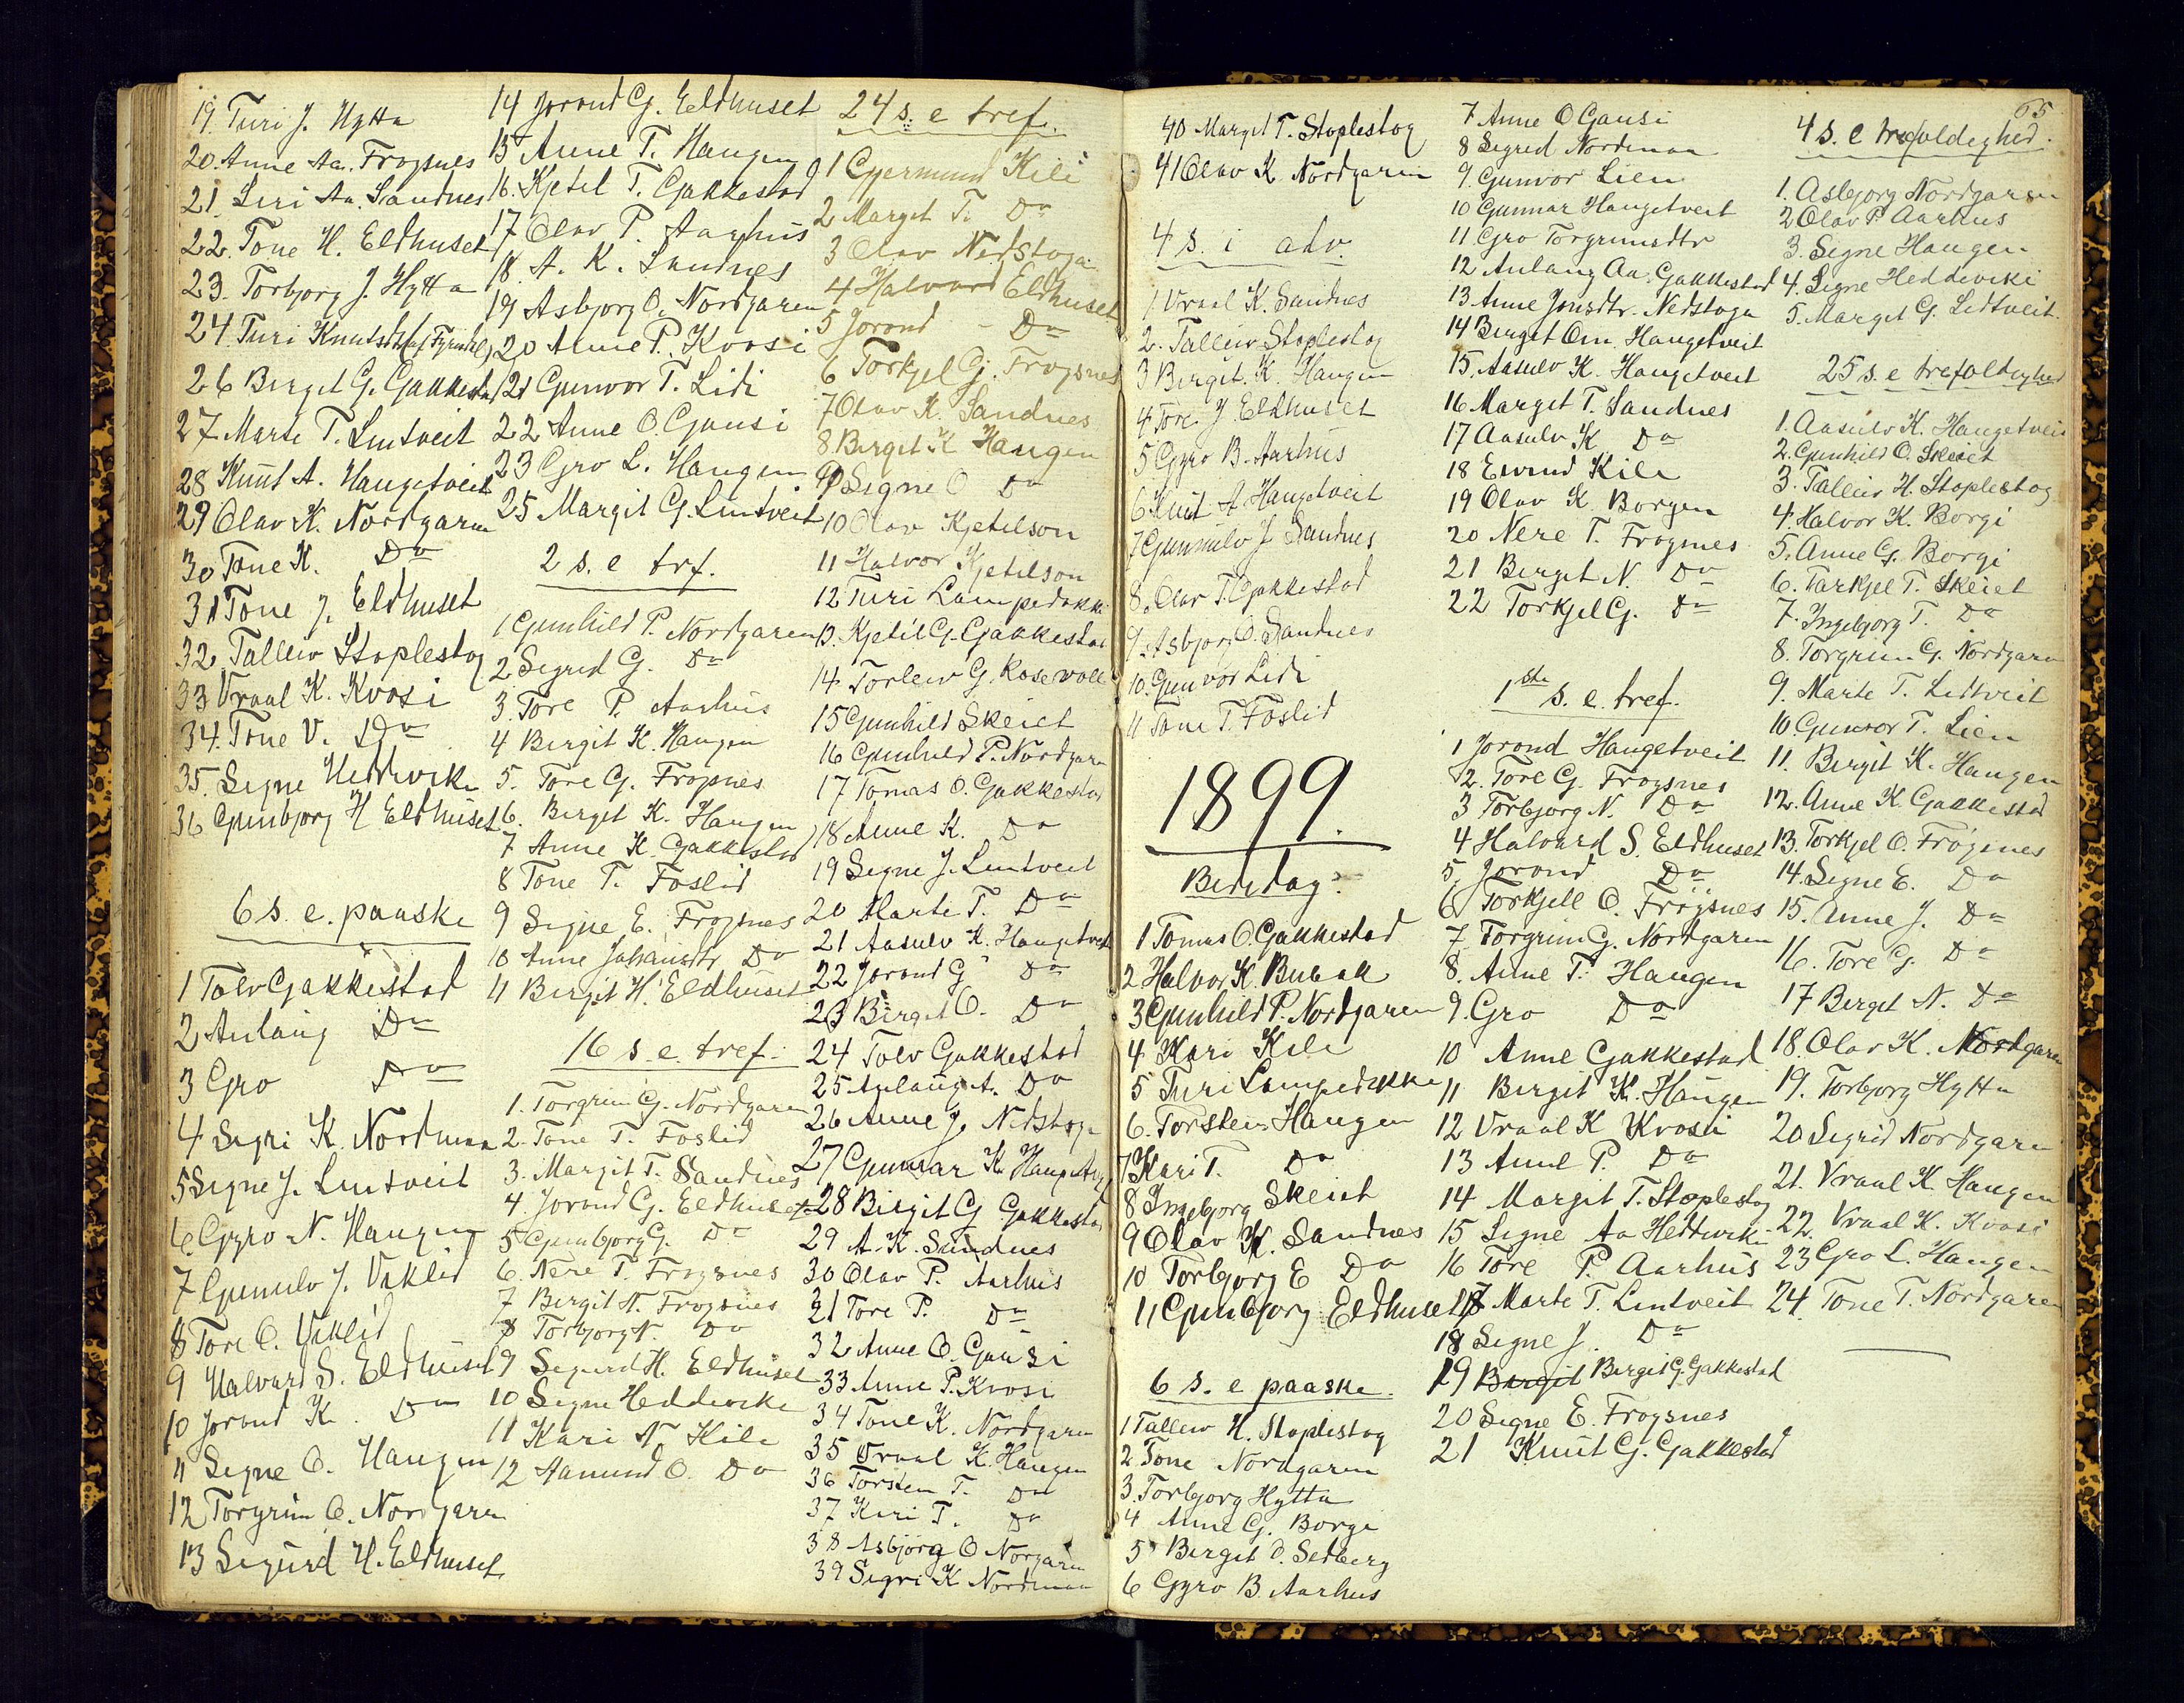 19. Turi J. Hytta
20. Anne Aa. Frøysnes
21. Siri Aa. Sandnes
22. Tone H. Eldhuset
23. Torbjørg J. Hytta
24. Turi Knutsdtr
26 Birgit G. Gakkestad
27 Marte T. Lintveit
28 Knut A. Haugetveit
29 Olav K. Nordgaren
30 Tone K. Do
31 Tone J. Eldhuset
32. Talleiv Stoplestog
33 Vraal K. Kvosi
34. Tone V. Do
35. Signe Heddevike
36 Gunbjørg H Eldhuset
6 s. e. paaske
1 Tolv Gakkestad
2 Anlaug Do
3 Gro Do
4 Sigri K. Nordman
5 Signe J. Lintveit
6. Gyro N. Haugen
7 Gunnulv J. Viklid
8 Tore O. Viklid
9 Halvard S. Eldhuset
10 Jorond K. Do
11 Signe O. Haugen
12 Torgrim G. Nordgaren
13 Sigurd H. Eldhuset
14 Jorond G. Eldhuset
15 Anne T. Haugen
16. Kjetil T. Gakkestad
17 Olav P. Aarhus
18. A. K. Sandnes
19 Asbjørg O. Nordgaren
20 Anne P. Kvosi
21 Gunvor T. Lidi
22 Anne O. Gausi
23 Gro L. Haugen
25 Margit G. Lintveit
2 s. e. trf.
1 Gunhild P. Nordgaren
2 Sigrid G. Do
3. Tore P. Aarhus
4 Birgit K. Haugen
5. Tore G. Frøysnes
6. Birgit K. Haugen
7 Anne K. Gakkestad
8 Tone T. Foslid
9 Signe E. Frøysnes
10 Anne Johansdtr Do
11 Birgit H. Eldhuset
16 s. e. tref.
1. Torgrim G. Nordgaren
2. Tone T. Foslid
3. Margit T. Sandnes
4. Jorond G. Eldhuset
5 Gunbjorg G. Do
6. Nere T. Frøysnes
7 Birgit N. Frøysnes
8 Torbjorg N. Do
9 Sigurd H. Eldhuset
10 Signe Heddevike
11 Kari N Kile
12 Aamund O. Do
24 s. e tref.
1 Gjermund Kili
2 Margit T. Do
3 Olav Nedstoga
4 Halvard Eldhuset
5 Jorond - Do
6 Torkjel G. Frøysnes
7 Olav K. Sandnes
8 Birgit K Haugen
9 Signe O Do
10 Olav Kjetilson
11 Halvor Kjetilson
12 Turi Lampedokki
13. Kjetil G. Gakkestad
14 Torleiv G. Rosevoll
15 Gunhild Skeiet
16 Gunhild P. Nordgaren
17 Tomas O. Gakkestad
18 Anne K. Do
19 Signe J. Lintveit
20 Marte T. Do
21 Aasulv K. Haugetveit
22 Jorond G Do
23 Birgit O. Do
24 Tolv Gakkestad
25 Anlaug A. Do
26 Anne J. Nedstoga
27 Gunnar K. Haugetveit
28 Birgit G Gakkestad
29 A. K. Sandnes
30 Olav P. Aarhus
31 Tore P. Do
32 Anne O. Gausi
33 Anne P. Kvosi
34 Tone K. Nordgaren
35 Vraal K. Haugen
36 Torstein T. Do
37 Kari T. Do
38 Asbjörg O Norgaren
39 Sigri K Nordman
65
40 Margit T. Stoplestog
41 Olav K Nordgaren
4 s. i adv.
1 Vraal K. Sandnes
2. Talleiv Stoplestog
3 Birgit. K. Haugen
4 Tore J. Eldhuset
5 Gyro B. Aarhus
6 Knut A Haugetveit
7 Gunnulv J Sandnes
8. Olav T. Gakkestad
9. Asbjorg O. Sandnes
10. Gunvor Lidi
11 Tone T. Foslid
1899.
Bededag.
1 Tomas O. Gakkestad
2 Halvor K. Bubak
3 Gunhild P. Nordgaren
4 Kari Kile
5 Turi Lampedokki
6. Torstein Haugen
7 Kari T. Do
8 Ingeborg Skeiet
9 Olav K. Sandnes
10 Torbjorg E Do
11 Gunbjorg Eldhuset
6 s. e paaske.
1 Talleiv H. Stoplestog
2 Tone Nordgaren
3. Torbjorg Hytta
4 Anne G. Borgi
5 Birgit O. Sedberg
6 Gyro B. Aarhus
7 Anne O Gausi
8 Sigrid Nordman
9. Gunvor Lien
10 Gunnar Haugetveit
11 Gro Torgrimsdtr
12 Anlaug Aa. Gakkestad
13 Anne Jonsdtr. Nedstoga
14 Birgit Om. Haugetveit
15. Aasulv K. Haugetveit
16 Margit T. Sandnes
17 Aasulv K Do
18 Eivind Kile
19 Olav K. Borgen
20 Nere T. Frøysnes
21 Birgit N. Do
22 Torkjel G. Do
1ste s. e. tref.
1 Jorond Haugetveit
2. Tore G. Frøysnes
3 Torbjorg N. Do
4 Halvard S. Eldhuset
5. Jorond Do
6 Torkjell O. Frøysnes
7. Torgrim G. Nordgaren
8. Anne T. Haugen
9. Gro Do
10 Anne Gakkestad
11 Birgit K. Haugen
12 Vraal K Kvosi
13 Anne P. Do
14 Margit T. Stoplestog
15 Signe Aa Heddevik
16 Tore P. Aarhus
17 Marte T. Lintveit
18 Signe J. Do
19 Birgit Birgit G. Gakkestad
20 Signe E. Frøysnes
21 Knut G. Gakkestad
4 s. e trefoldighed.
1. Asbjørg Nordgaren
2 Olav P. Aarhus
3. Signe Haugen
4. Signe Heddeviki
5. Margit G. Lidtveit.
25 s. e trefoldighed
1. Aasulv K. Haugetveit
2. Gunhild O. Skeiet
3. Talleiv H. Stoplestog
4. Halvor K. Borgi
5. Anne G. Borgi
6. Tarkjel T. Skeiet
7. Ingebjorg T. Do
8. Torgrim G. Nordgaren
9. Marte T. Lidtveit
10 Gunvor T. Lien
11. Birgit K. Haugen
12. Anne K. Gakkestad
13. Torkjel O. Frøysnes
14. Signe E. Do
15. Anne J. Do
16. Tore G. Do
17 Birgit N. Do
18. Olav K. Nordgaren
19. Torbjorg Hytta
20 Sigrid Nordgaren
21. Vraal K. Haugen
22. Vraal K. Kvosi
23 Gro L. Haugen
24. Tone T. Nordgaren